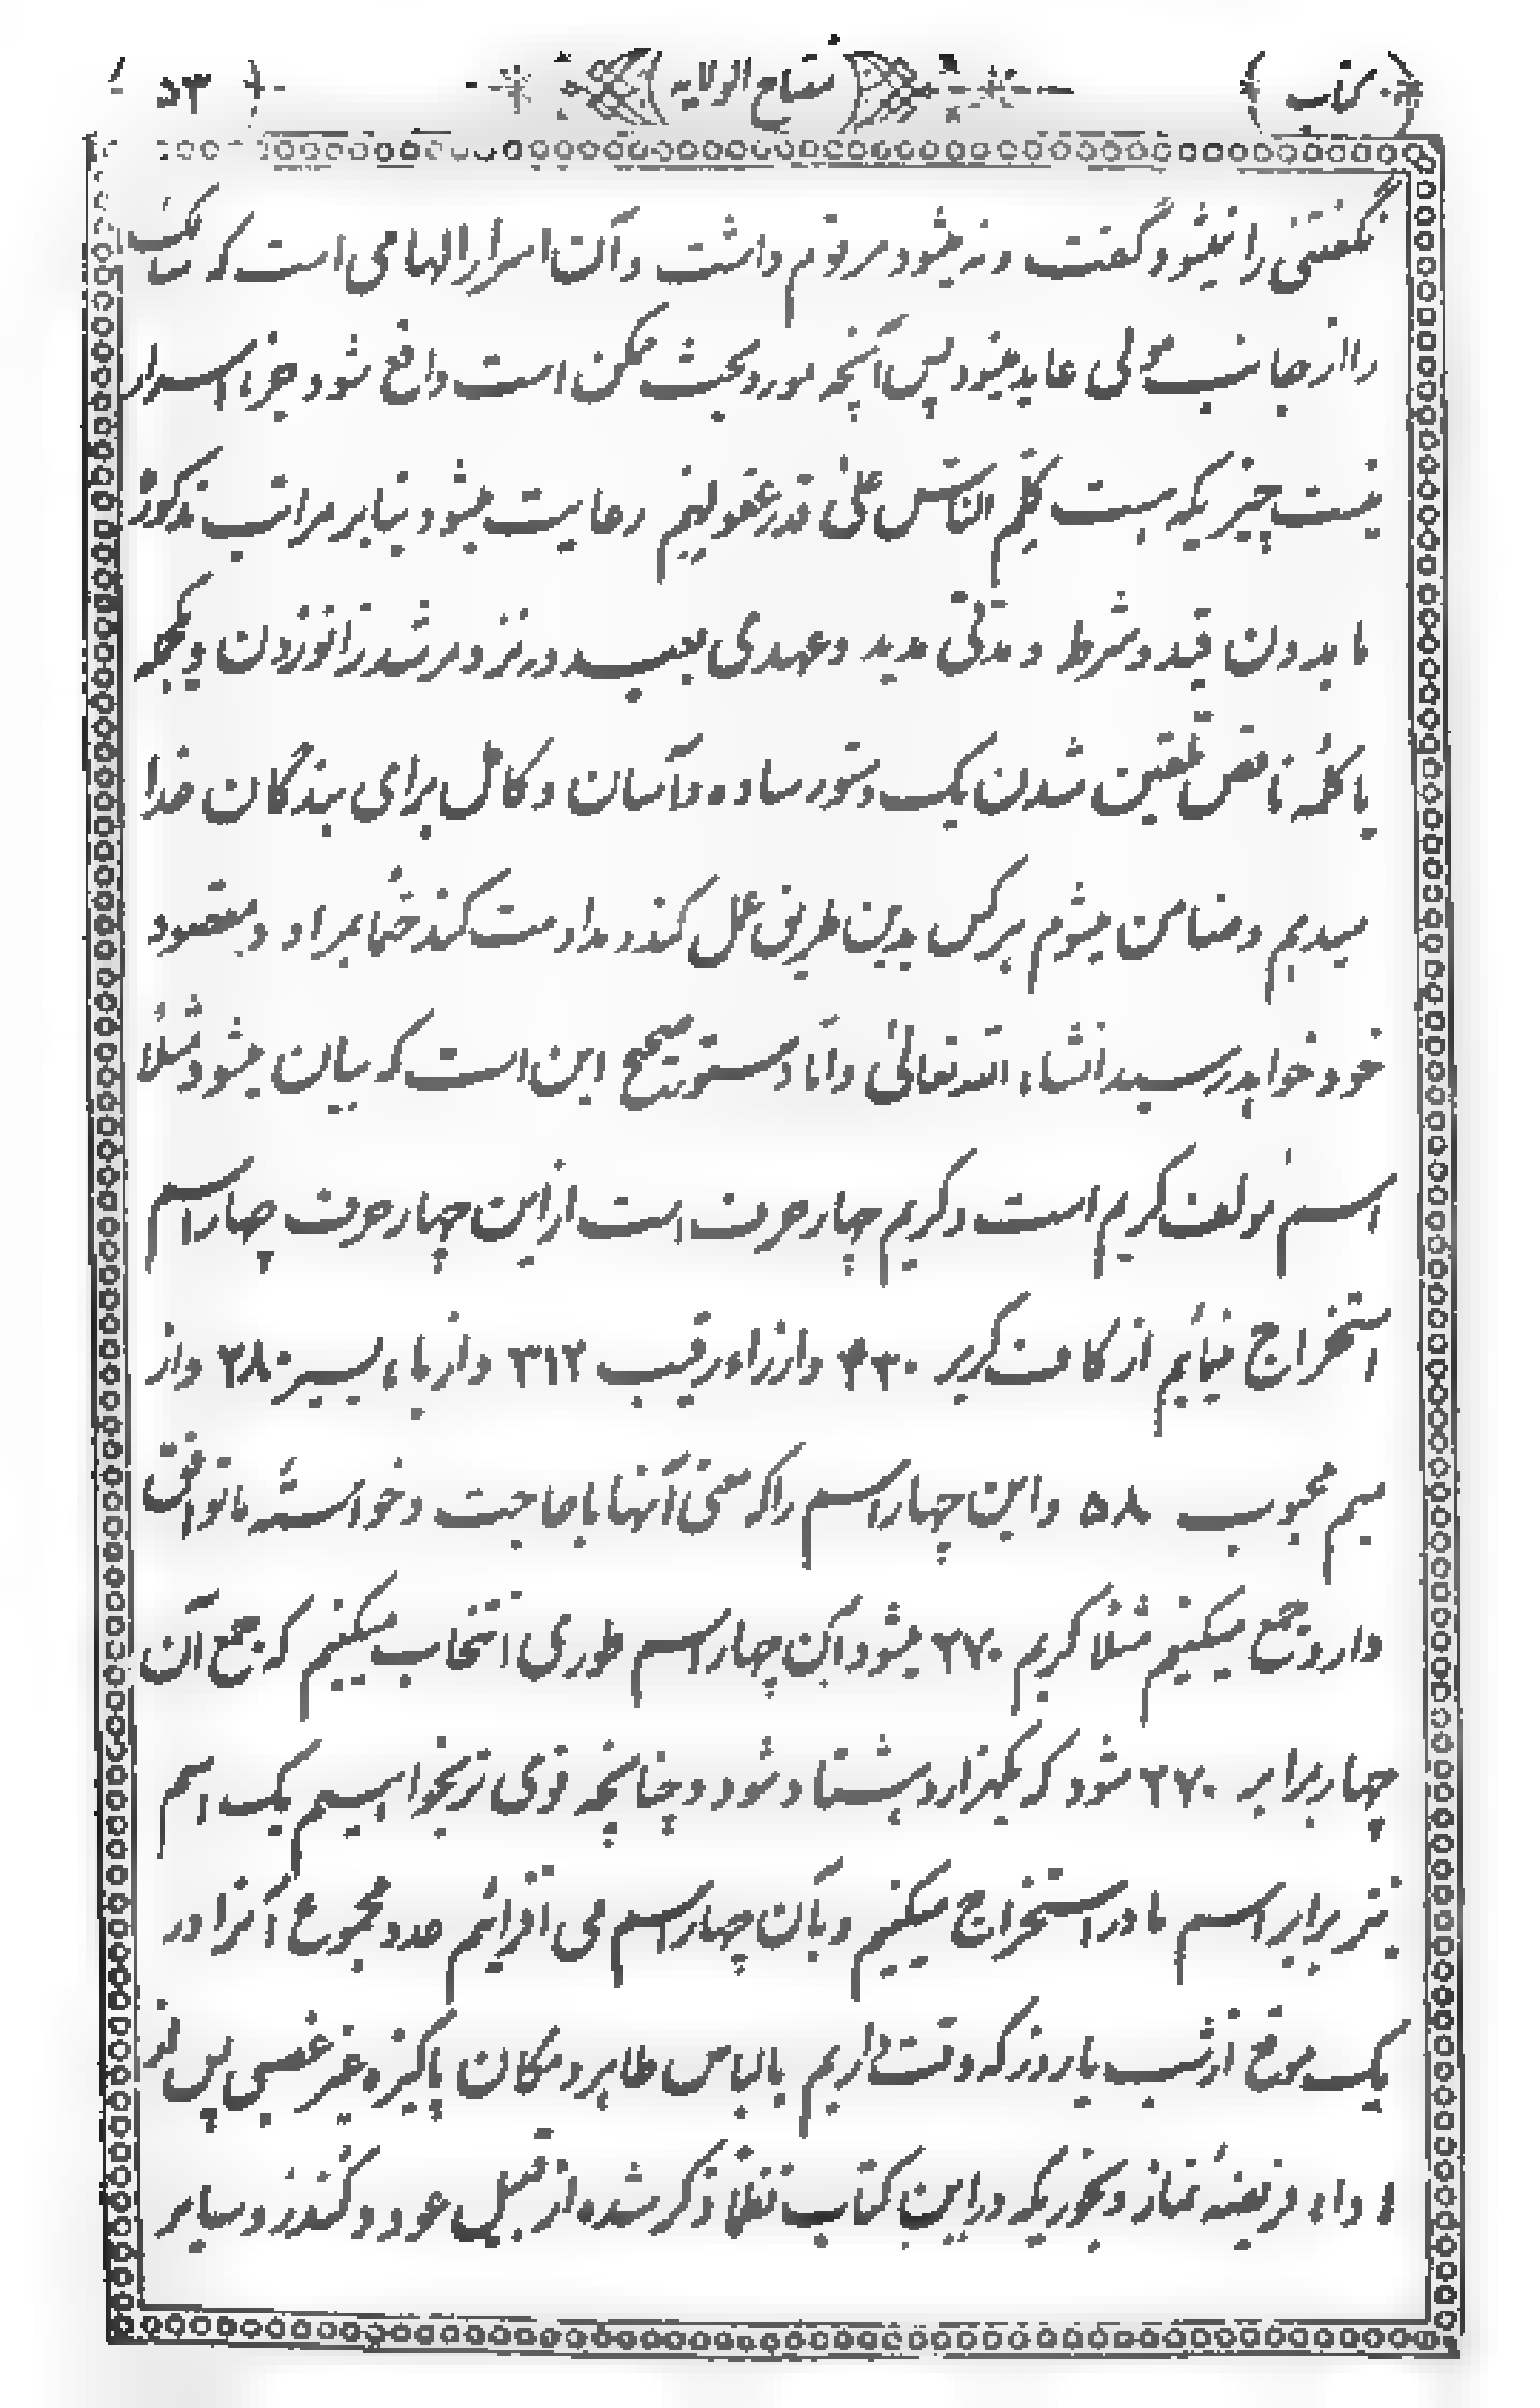 کتاب مفتاح الولایه ۵۳
نگفتنی را نمیشود گفت و نه میشود مرقوم داشت و آن اسرار الهامی است که سالک
را از جانب مولی عاید میشود پس آنچه مورد بحث ممکن است واقع شود جزء اسرار
نیست چیزیکه هست کلم الناس علی قدر عقولهم رعایت میشود بنابر مراتب مذکور
ما بدون قید و شرط و مدتی مدید و عهدی بعید در نزد مرشد زانو زدن و بیک
یا کلمه ناقص تلقین شدن یک دستور ساده و آسان و کامل برای بندگان خدا
میدیم و ضامن میشوم هر کس بدین طریق عمل کند و مداومت کند حتما بمراد و مقصود
خود خواهد رسید انشاء الله تعالی و اما دستور صحیح این است که بیان میشود مثلا
اسم مولف کریم است و کریم چهار حرف است از این چهار حرف چهار اسم
استخراج مینمائیم از کاف کریر ۴۳۰ و از راء رقیب ۳۱۲ و از یاء یسیر ۲۸۰ و از
میم محبوب ۵۸ و این چهار اسم را که معنی آنها با حاجت و خواسته ما توافق
دارد جمع میکنیم مثلا کریم ۲۷۰ میشود آن چهار اسم طوری انتخاب میکنیم که جمع آن
چهار برابر ۲۷۰ شود که یکهزار و هشتاد شود و چنانچه قوی تر بخواهیم یک اسم
نیز برابر اسم مادر استخراج میکنیم و بآن چهار اسم می افزائیم عدد مجموع آنرا در
یک موقع از شب یا روز که وقت داریم با لباس طاهر و مکان پاکیزه غیر غصبی پس از
اداء فریضه نماز و بخوریکه در این کتاب نظما ذکر شده از قبیل عود و کندر و سایر